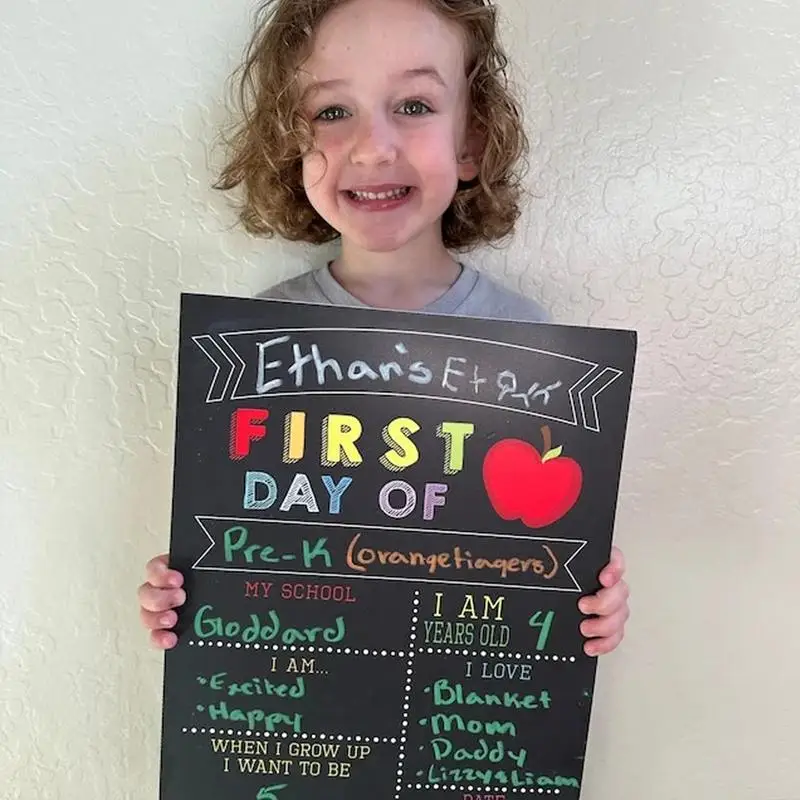 Ethan's
FIRST
DAY OF
Pre-K (orangetiagers)
MY SCHOOL
Goddard
I AM
YEARS OLD 4
I AM...
•Excited
•Happy
I LOVE
•Blanket
•Mom
•Daddy
•Lizzy & Liam
WHEN I GROW UP
I WANT TO BE
5
DATE